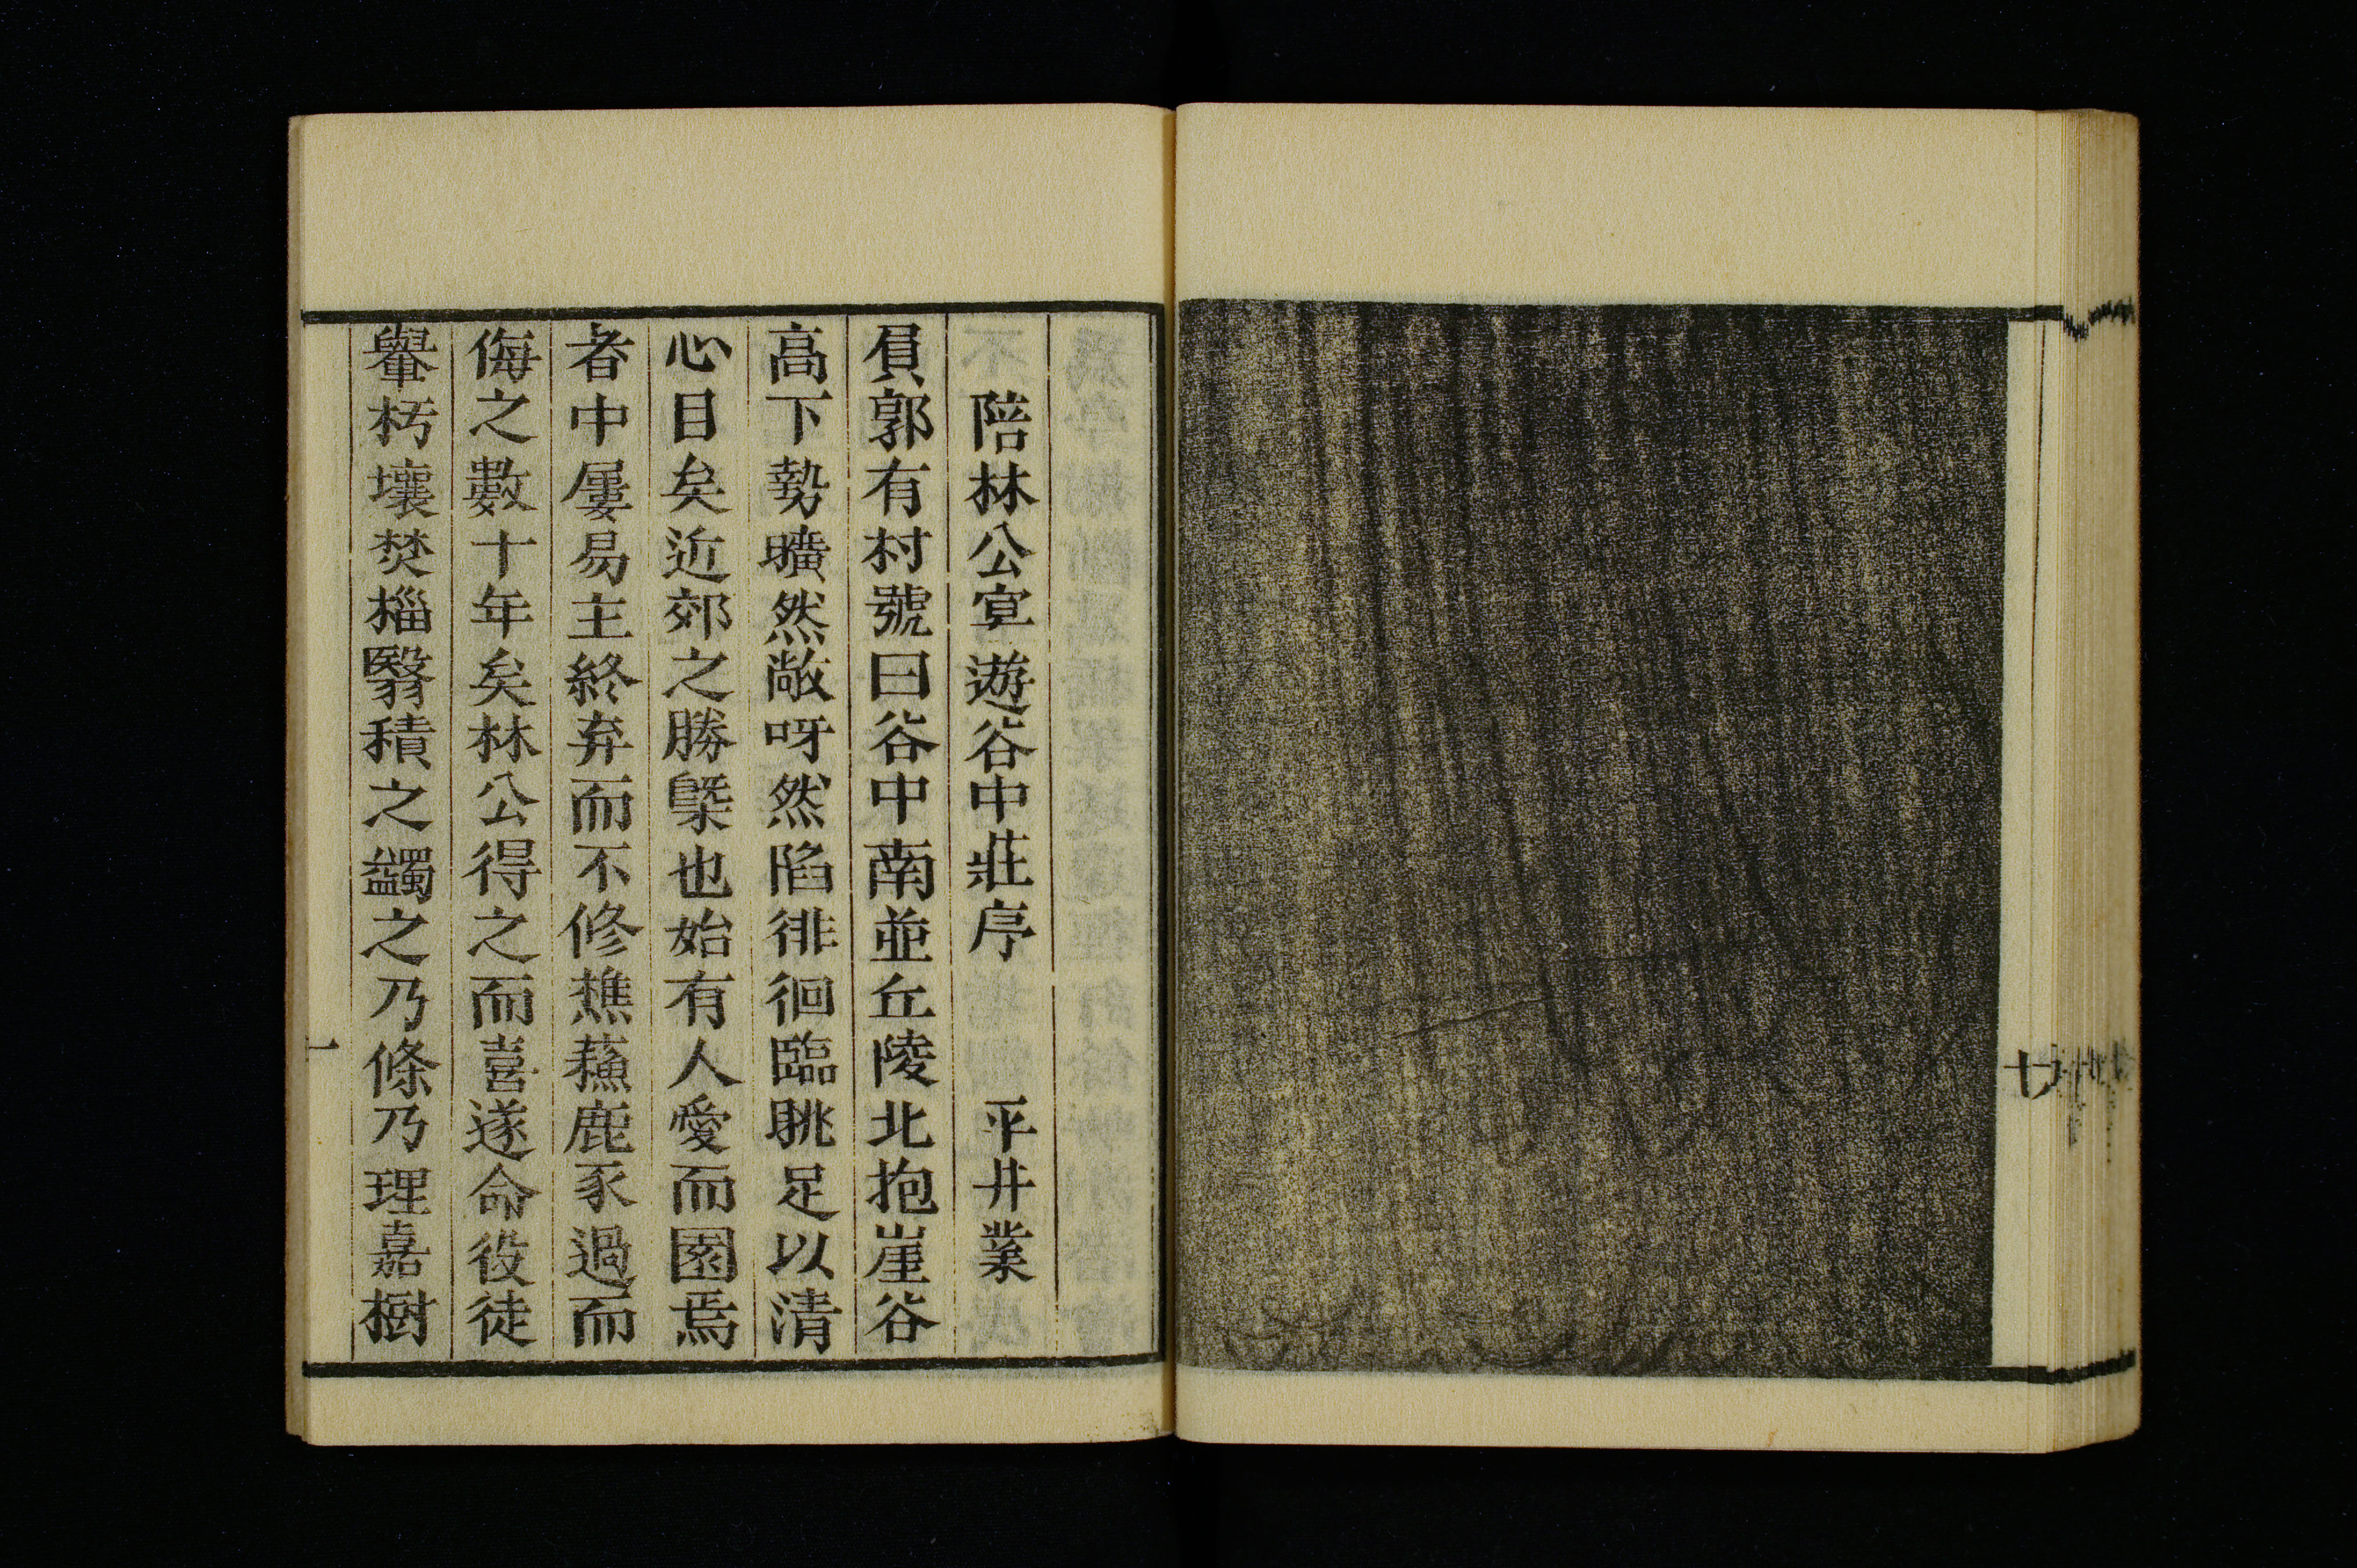 陪林公宴遊谷中莊序　平井業
負郭有村號曰谷中南並丘陵北抱崖谷
高下勢曠然敞呀然陷徘徊臨眺足以清
心目矣近郊之勝槩也始有人愛而園焉
者中屢易主終弃而不修樵蘓鹿豕過而
侮之數十年矣林公得之而喜遂命役徒
轝朽壤焚椔翳積之蠲之乃條乃理嘉樹
一
七